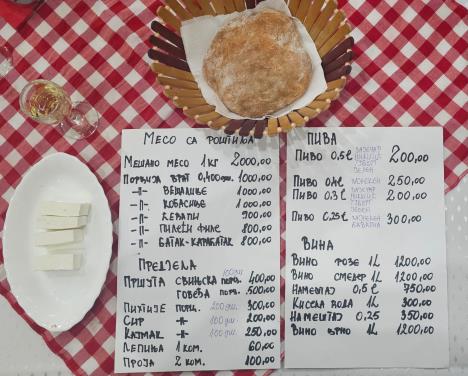 МЕСО СА РОШТИЉА
МЕШАНО МЕСО 1 КГ 2000,00
ПОРЦИЈА ВРАТ 0,400gr. 1000,00
-॥- ВЕШАЛИЦЕ 1000,00
-॥- КОБАСИЦЕ 1000,00
-॥- ЋЕВАПИ 900,00
-॥- ПИЛЕЋИ ФИЛЕ 800,00
-॥- БАТАК-КАРАБАТАК 800,00
ПРЕДЈЕЛА
100 gm.
ПРШУТА СВИЊСКА ПОРЦ. 400,00
ГОВЕЂА ПОРЦ. 500,00
ПИХТИЈЕ ПОРЦ. 200 gm. 300,00
СИР -॥- 100 gm. 200,00
КАЈМАК -॥- 100 gm. 250,00
ЛЕПИЊА 1 КОМ. 60,00
ПРОЈА 2 КОМ. 100,00
ПИВА
ПИВО 0,5 ℓ 200,00
ПИВО 250,00
ПИВО 0,3 ℓ 200,00
ПИВО 0,25 ℓ 300,00
ВИНА
ВИНО РОЗЕ 1L 1200,00
ВИНО 1L 1200,00
0,5 ℓ 750,00
КИСЕЛА ВОДА 1L 300,00
0,25 350,00
ВИНО 1L 1200,00